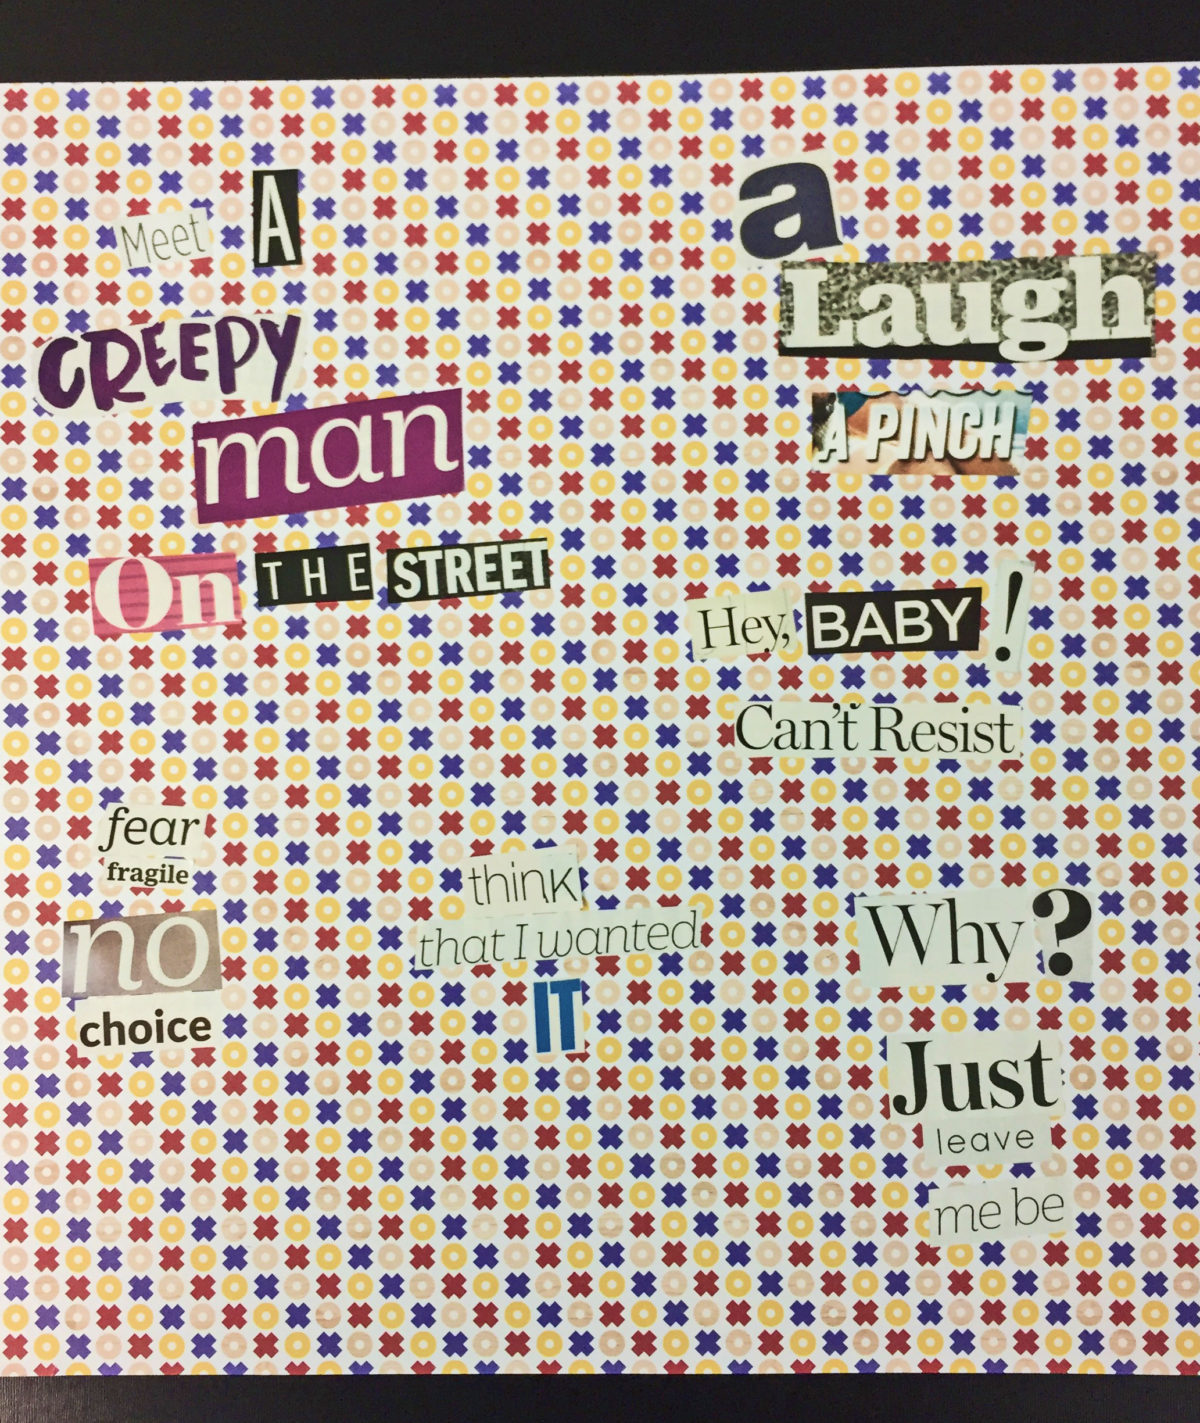 Meet A
CREEPY
man
On THE STREET
a
Laugh
A PINCH
Hey, BABY!
Can't Resist
fear
fragile
no
choice
think
that I wanted
IT
Why?
Just
leave
me be